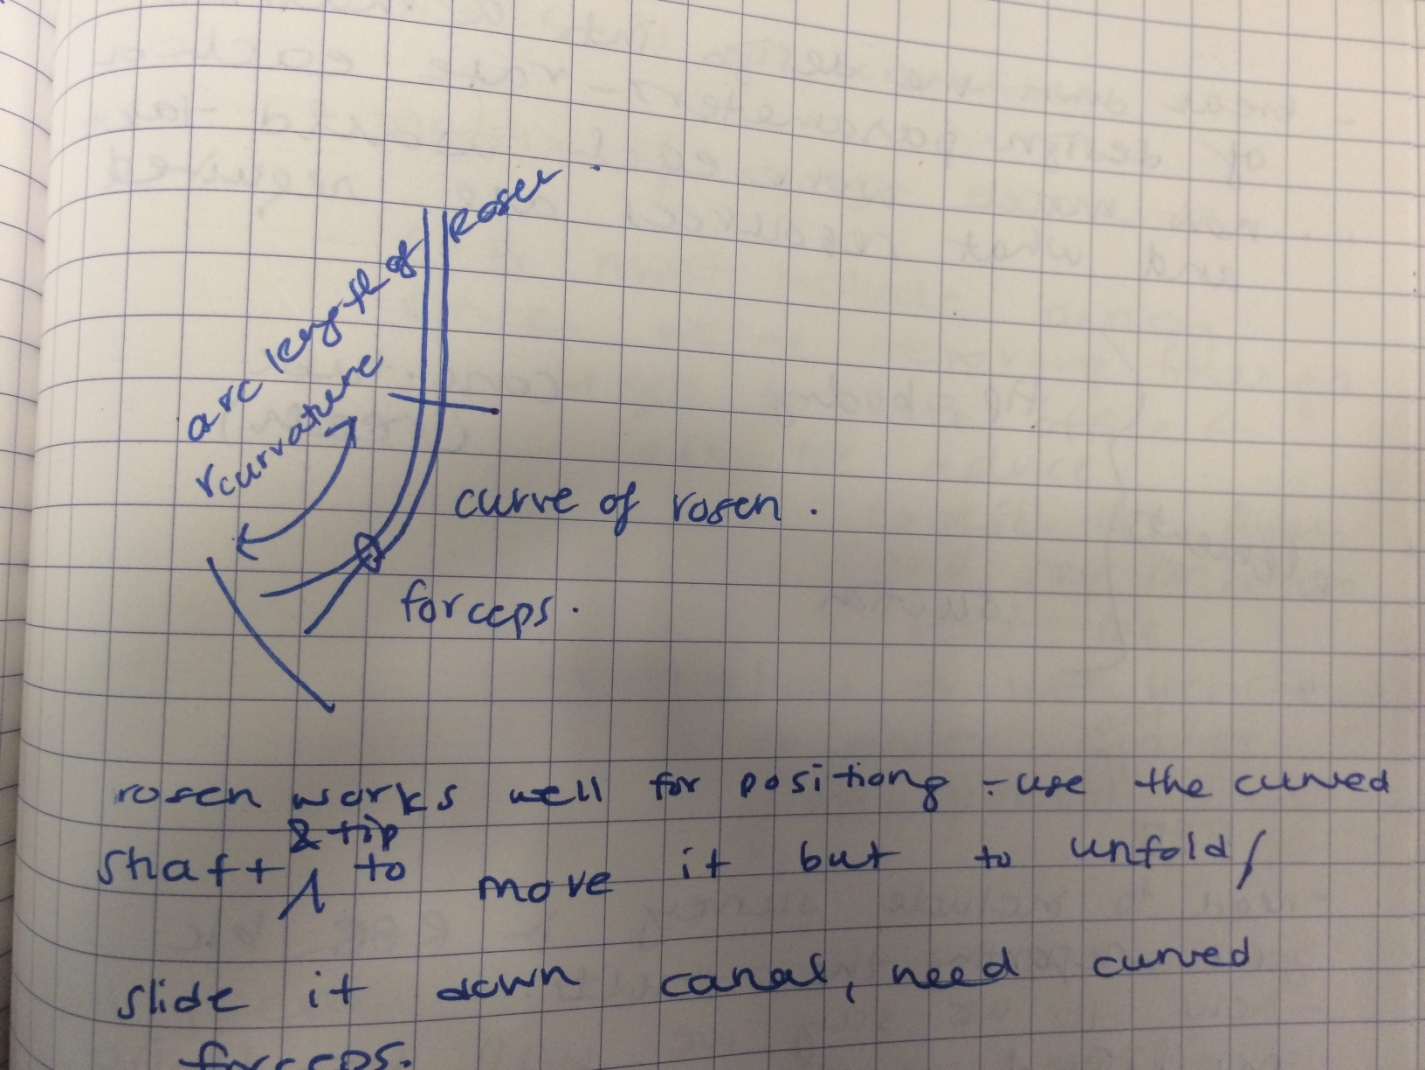 arc length of Rosen.
rcurvature
curve of rosen.
forceps.
rosen works well for positiong - use the curved
shaft & tip to move it but to unfold/
slide it down canal, need curved
forceps.